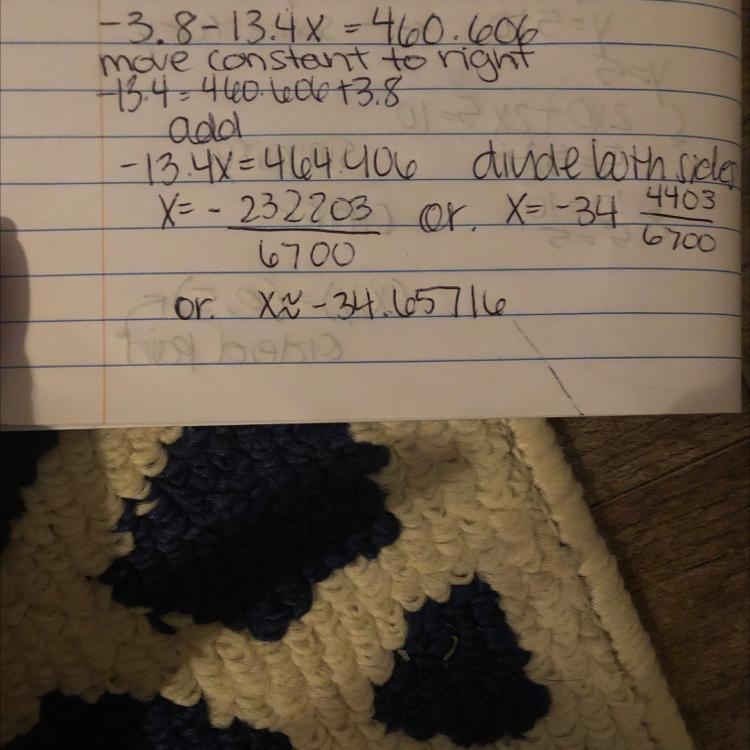 -3.8-13.4x=460.606
move constant to right
-13.4=460.606+3.8
add
-13.4x=464.406 divide both sides
x=-232203/6700 or. x=-34 4403/6700
or. x≈-34.65716